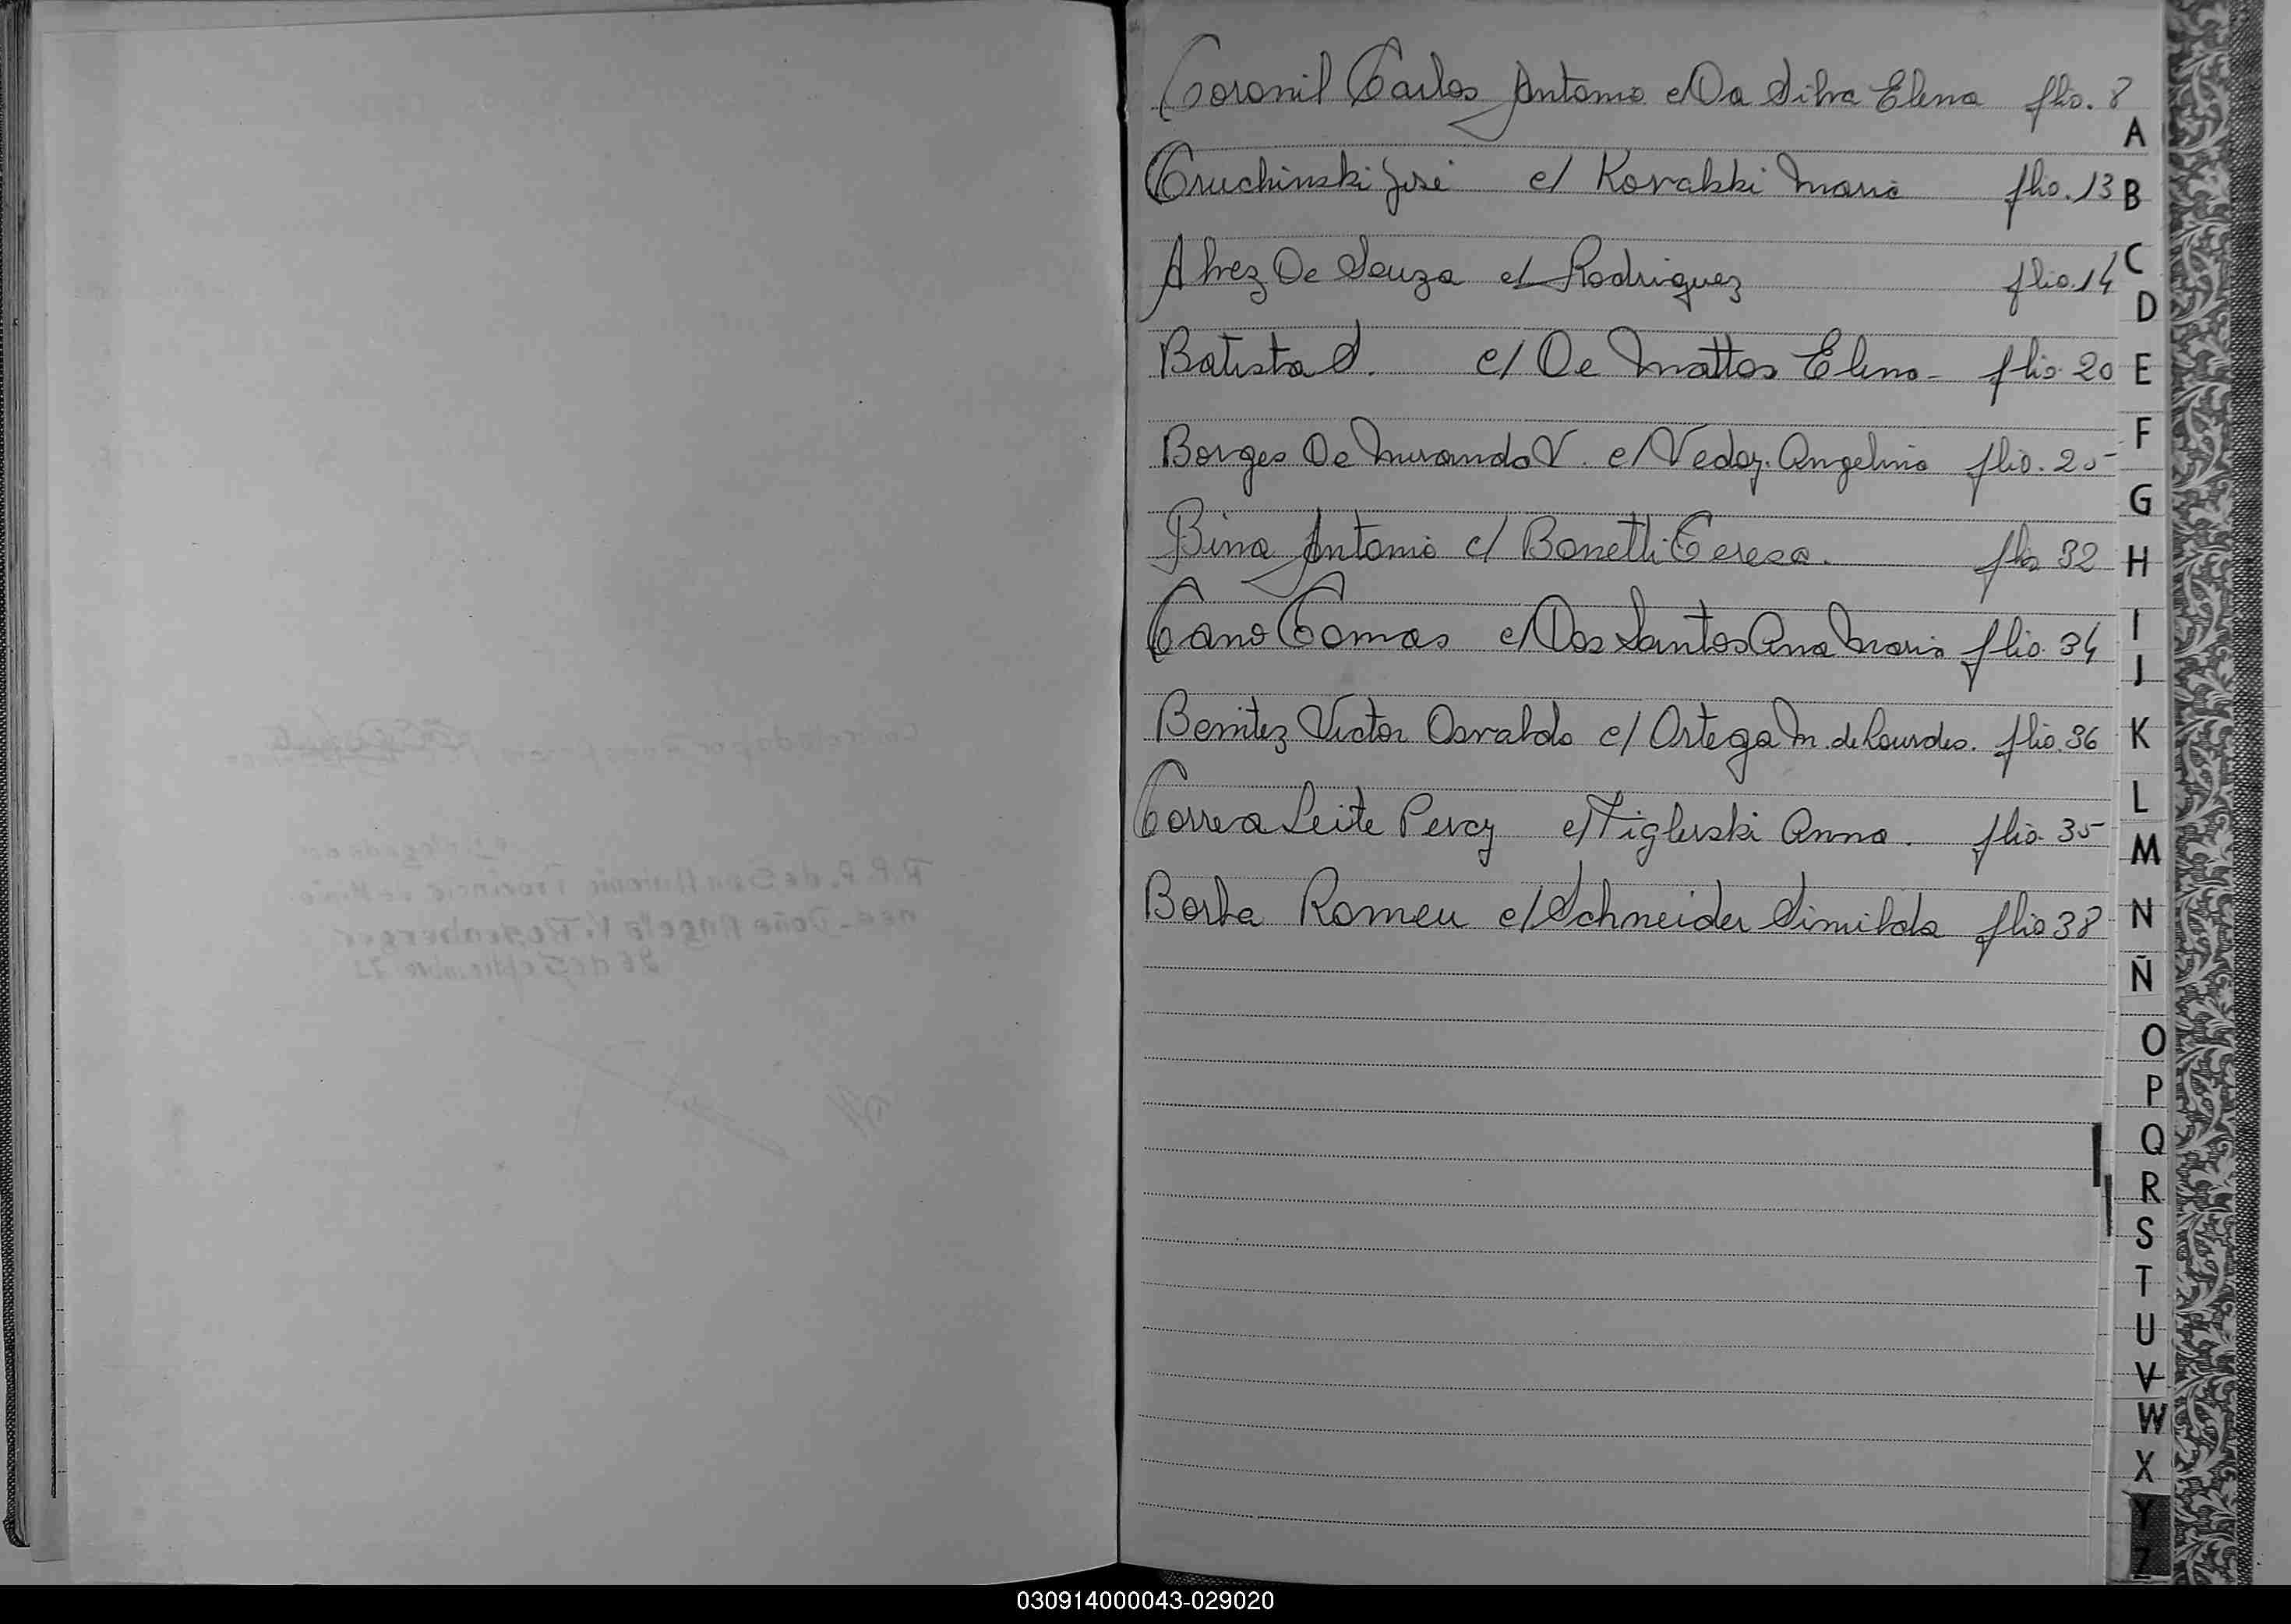 Coronil Carlos Antonio c/Da Silva Elena flio. 8
Cruchinski José c/ Kovalski Maria flio. 13
Alvez De Souza c/ Rodriguez flio. 14
Batista S. c/ De Mattos Elena - flio. 20
Borges De Miranda V. c/ Vedoz. Angelina flio. 25
Bina Antonio c/ Bonetti Teresa. flio 32
Cano Tomas c/ Dos Santos Ana Maria flio. 34
Benitez Victor Osvaldo c/ Ortega M. de Lourdes. flio. 36
Correa Leite Percy c/ Anna. flio. 35
Borba Romeu c/ Schneider Similda flio 38
A
B
C
D
E
F
G
H
I
J
K
L
M
N
Ñ
O
P
Q
R
S
T
U
V
W
X
Y
Z
030914000043-029020